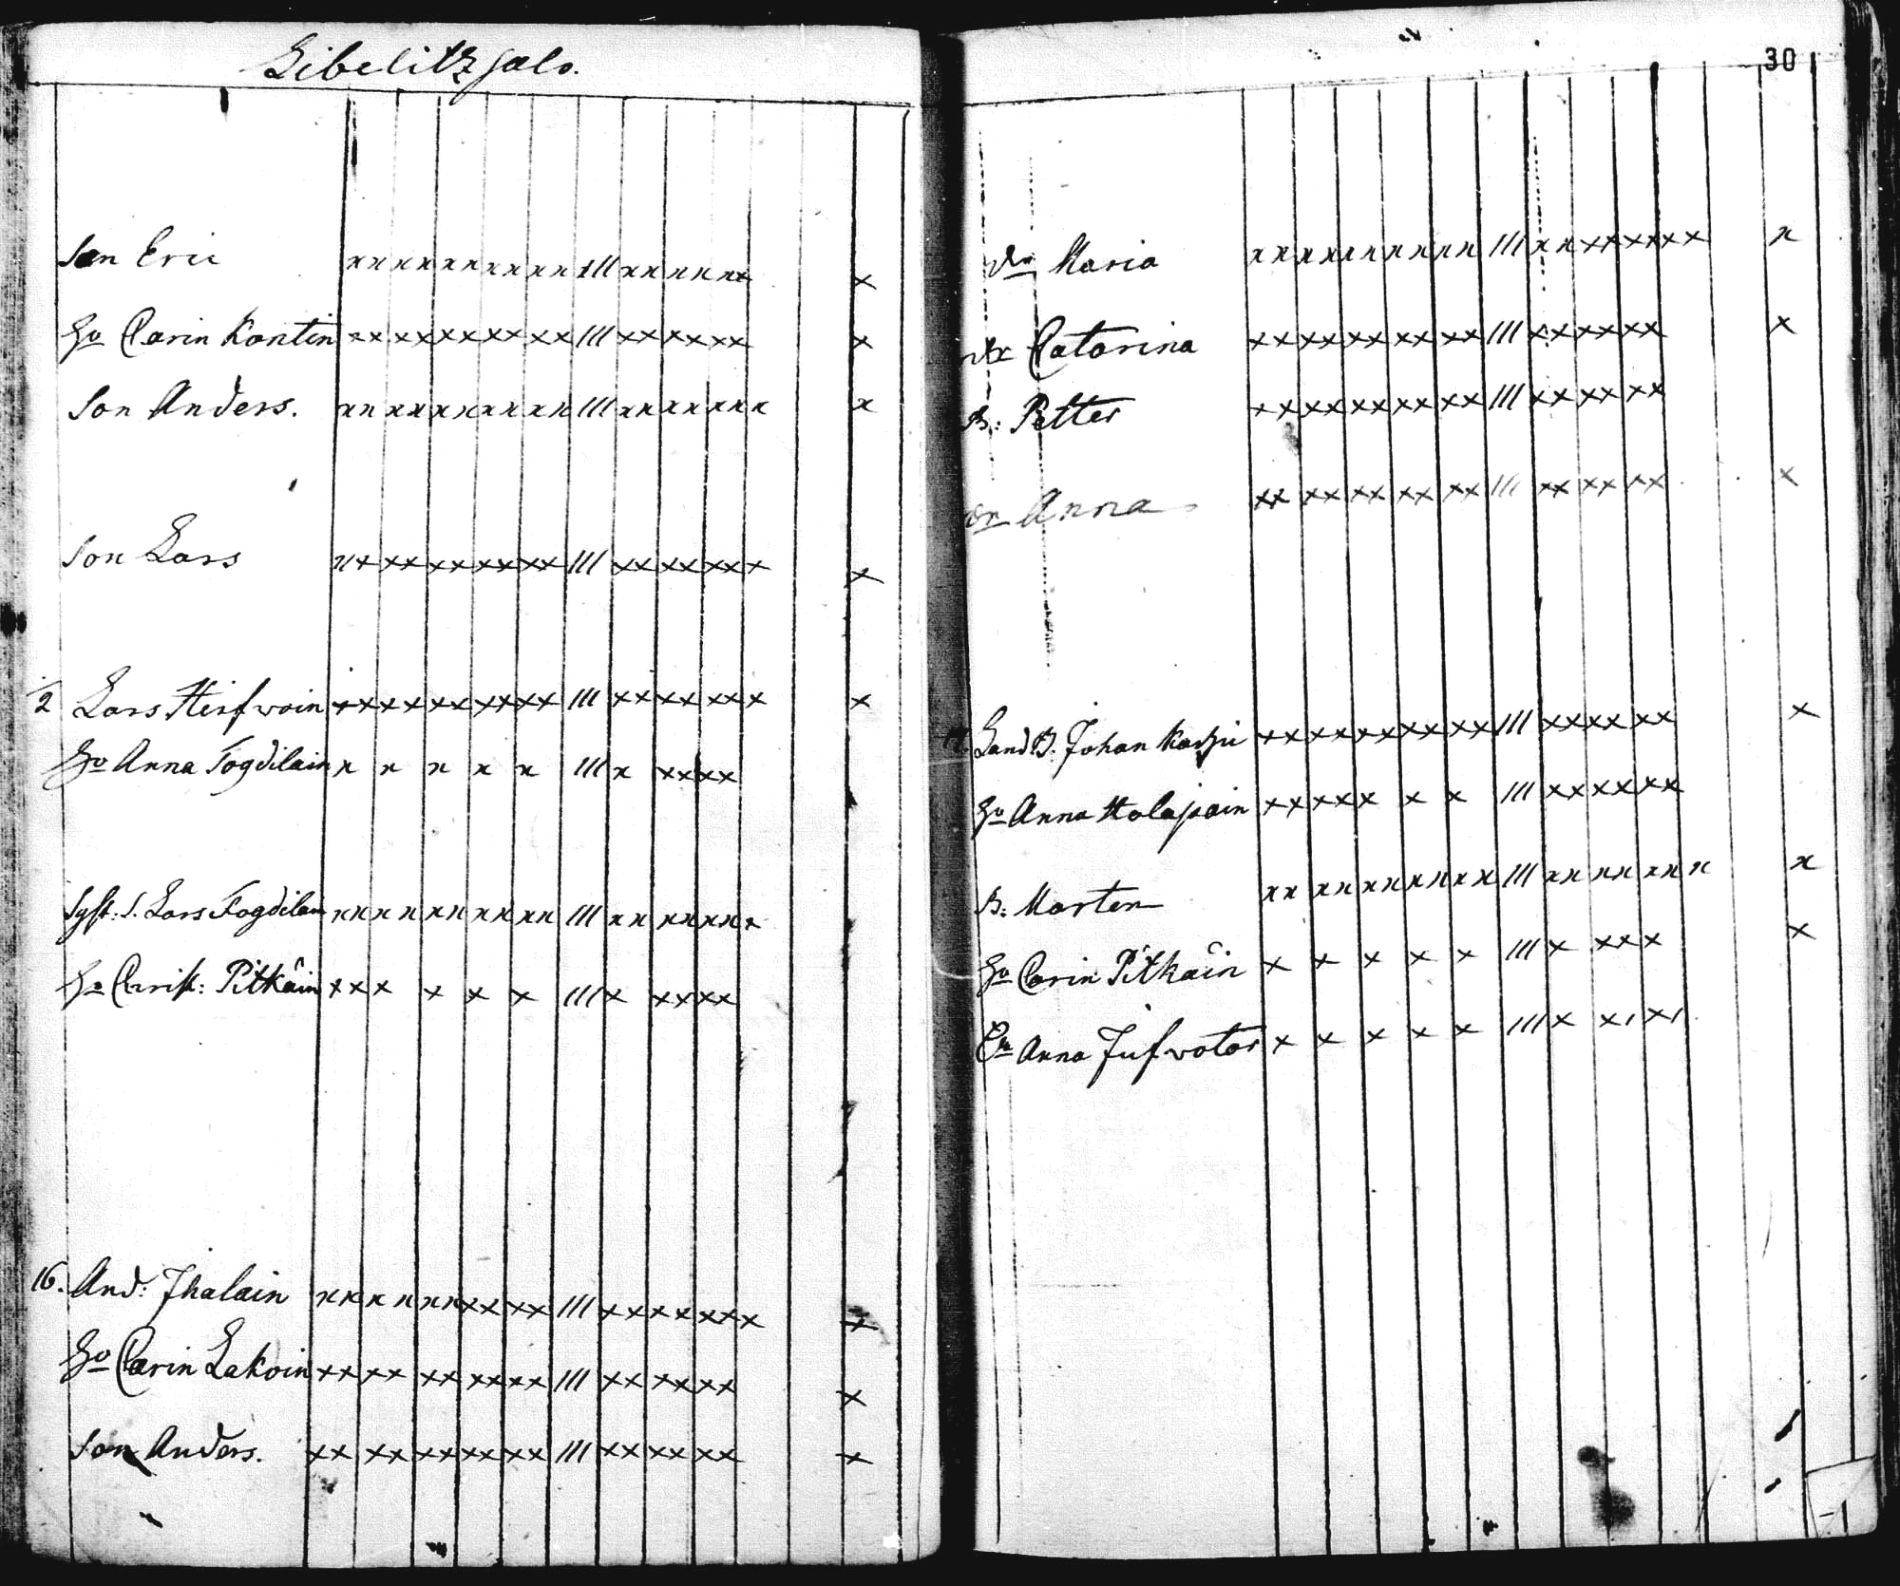 Libelitz Salo.
Son Eric xx xx xx xx xx III xx xx xx x
Hu Carin Kontin xx xx xx xx xx III xx xx xx x
Son Anders. xx xx xx xx xx III xx xx xx x x
Son Lars xx xx xx xx xx III xx xx xx x x
2 Lars Hirfwoin xx xx xx xx xx III xx xx xx x x
Hu Anna Fogdilain x x x x x III x xx xx
Syst: S. Lars Fogdilain xx xx xx xx xx III xx xx xx x
Hu Christ: Pitkäin xx x x x x III x xx xx
16. And: Ihalain xx xx xx xx xx III xx xx xx x x
Hu Carin Lakoin xx xx xx xx xx III xx xx xx x
Son Anders. xx xx xx xx xx III xx xx xx x
30
Dr Maria xx xx xx xx xx III xx xx xx x x
Dr Catarina xx xx xx xx xx III xx xx xx x
B: Petter xx xx xx xx xx III xx xx xx
Dr Anna xx xx xx xx xx III xx xx xx x
Land B. Johan xx xx xx xx xx III xx xx xx x
Hu Anna Holapain xx xx x x x III xx xx xx
B: Morten xx xx xx xx xx III xx xx xx x x
Hu Carin Pitkäin x x x x x III x xx x x
Anna Jufwotar x x x x x III x x, x,